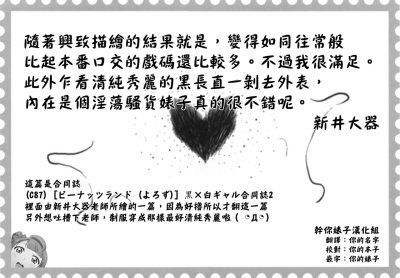 隨著興致描繪的結果就是，變得如同往常般
比起本番口交的戲碼還比較多。不過我很滿足。
此外乍看清純秀麗的黑長直一剝去外表，
內在是個淫蕩騷貨婊子真的很不錯呢。
新井大器
這篇是合同誌
(C87) [ピーナッツランド (よろず)] 黒×白ギャル合同誌2
裡面由新井大器老師所繪的一篇，因為好擼所以才翻這一篇
另外想吐槽下老師，制服穿成那樣最好清純秀麗啦 ( ﾟДﾟ)
幹你婊子漢化組
翻譯：你的名字
校對：你的本子
嵌字：你的婊子